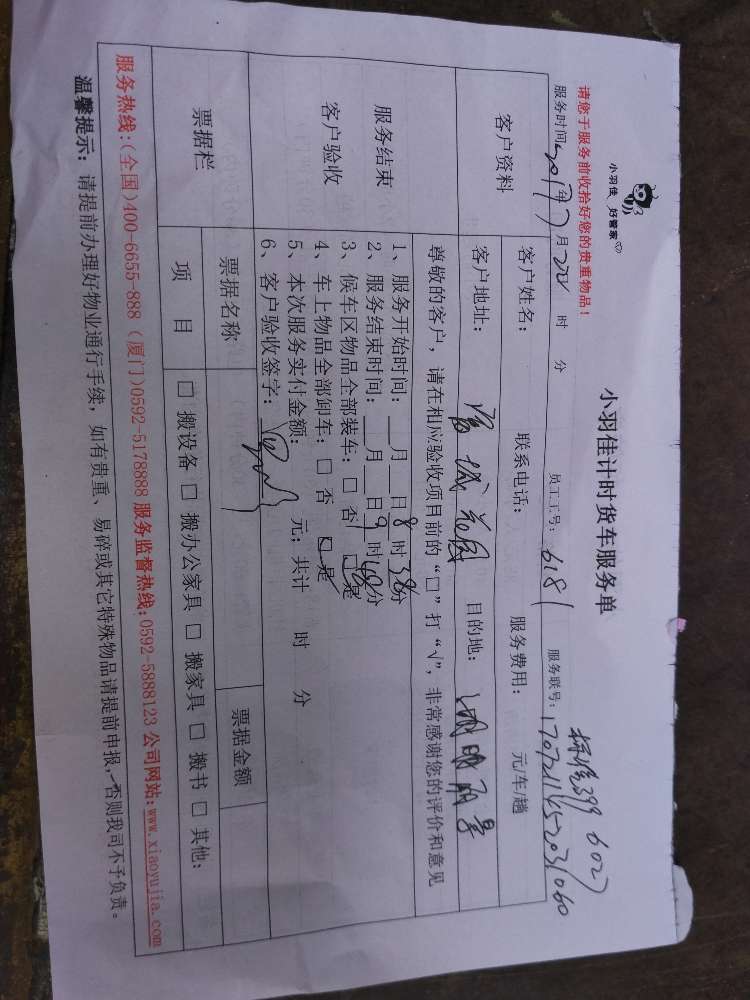 小羽佳 好管家
小羽佳计时货车服务单
请您于服务前收拾好您的贵重物品！
6027
服务时间：2017年7月22日 时 分 员工工号：6181 服务联号：17072114520031060
客户资料
客户姓名： 联系电话： 服务费用： 元/车/趟
客户地址： 富城花园 目的地： 湖明雨景
服务结束
客户验收
尊敬的客户，请在相应验收项目前的“□”打“√”，非常感谢您的评价和意见
1、服务开始时间：__月__日8时38分
2、服务结束时间：__月__日9时40分
3、候车区物品全部装车：□ 否 □是
4、车上物品全部卸车：□ 否 □是
5、本次服务实付金额： 元；共计 时 分
6、客户验收签字：
票据栏
票据名称 票据金额
项 目 □ 搬设备 □ 搬办公家具 □ 搬家具 □ 搬书 □ 其他：
服务热线：(全国)400-6655-888 (厦门)0592-5178888 服务监督热线：0592-5888123 公司网站：www.xiaoyujia.com
温馨提示：请提前办理好物业通行手续，如有贵重、易碎或其它特殊物品请提前申报，否则我司不予负责。